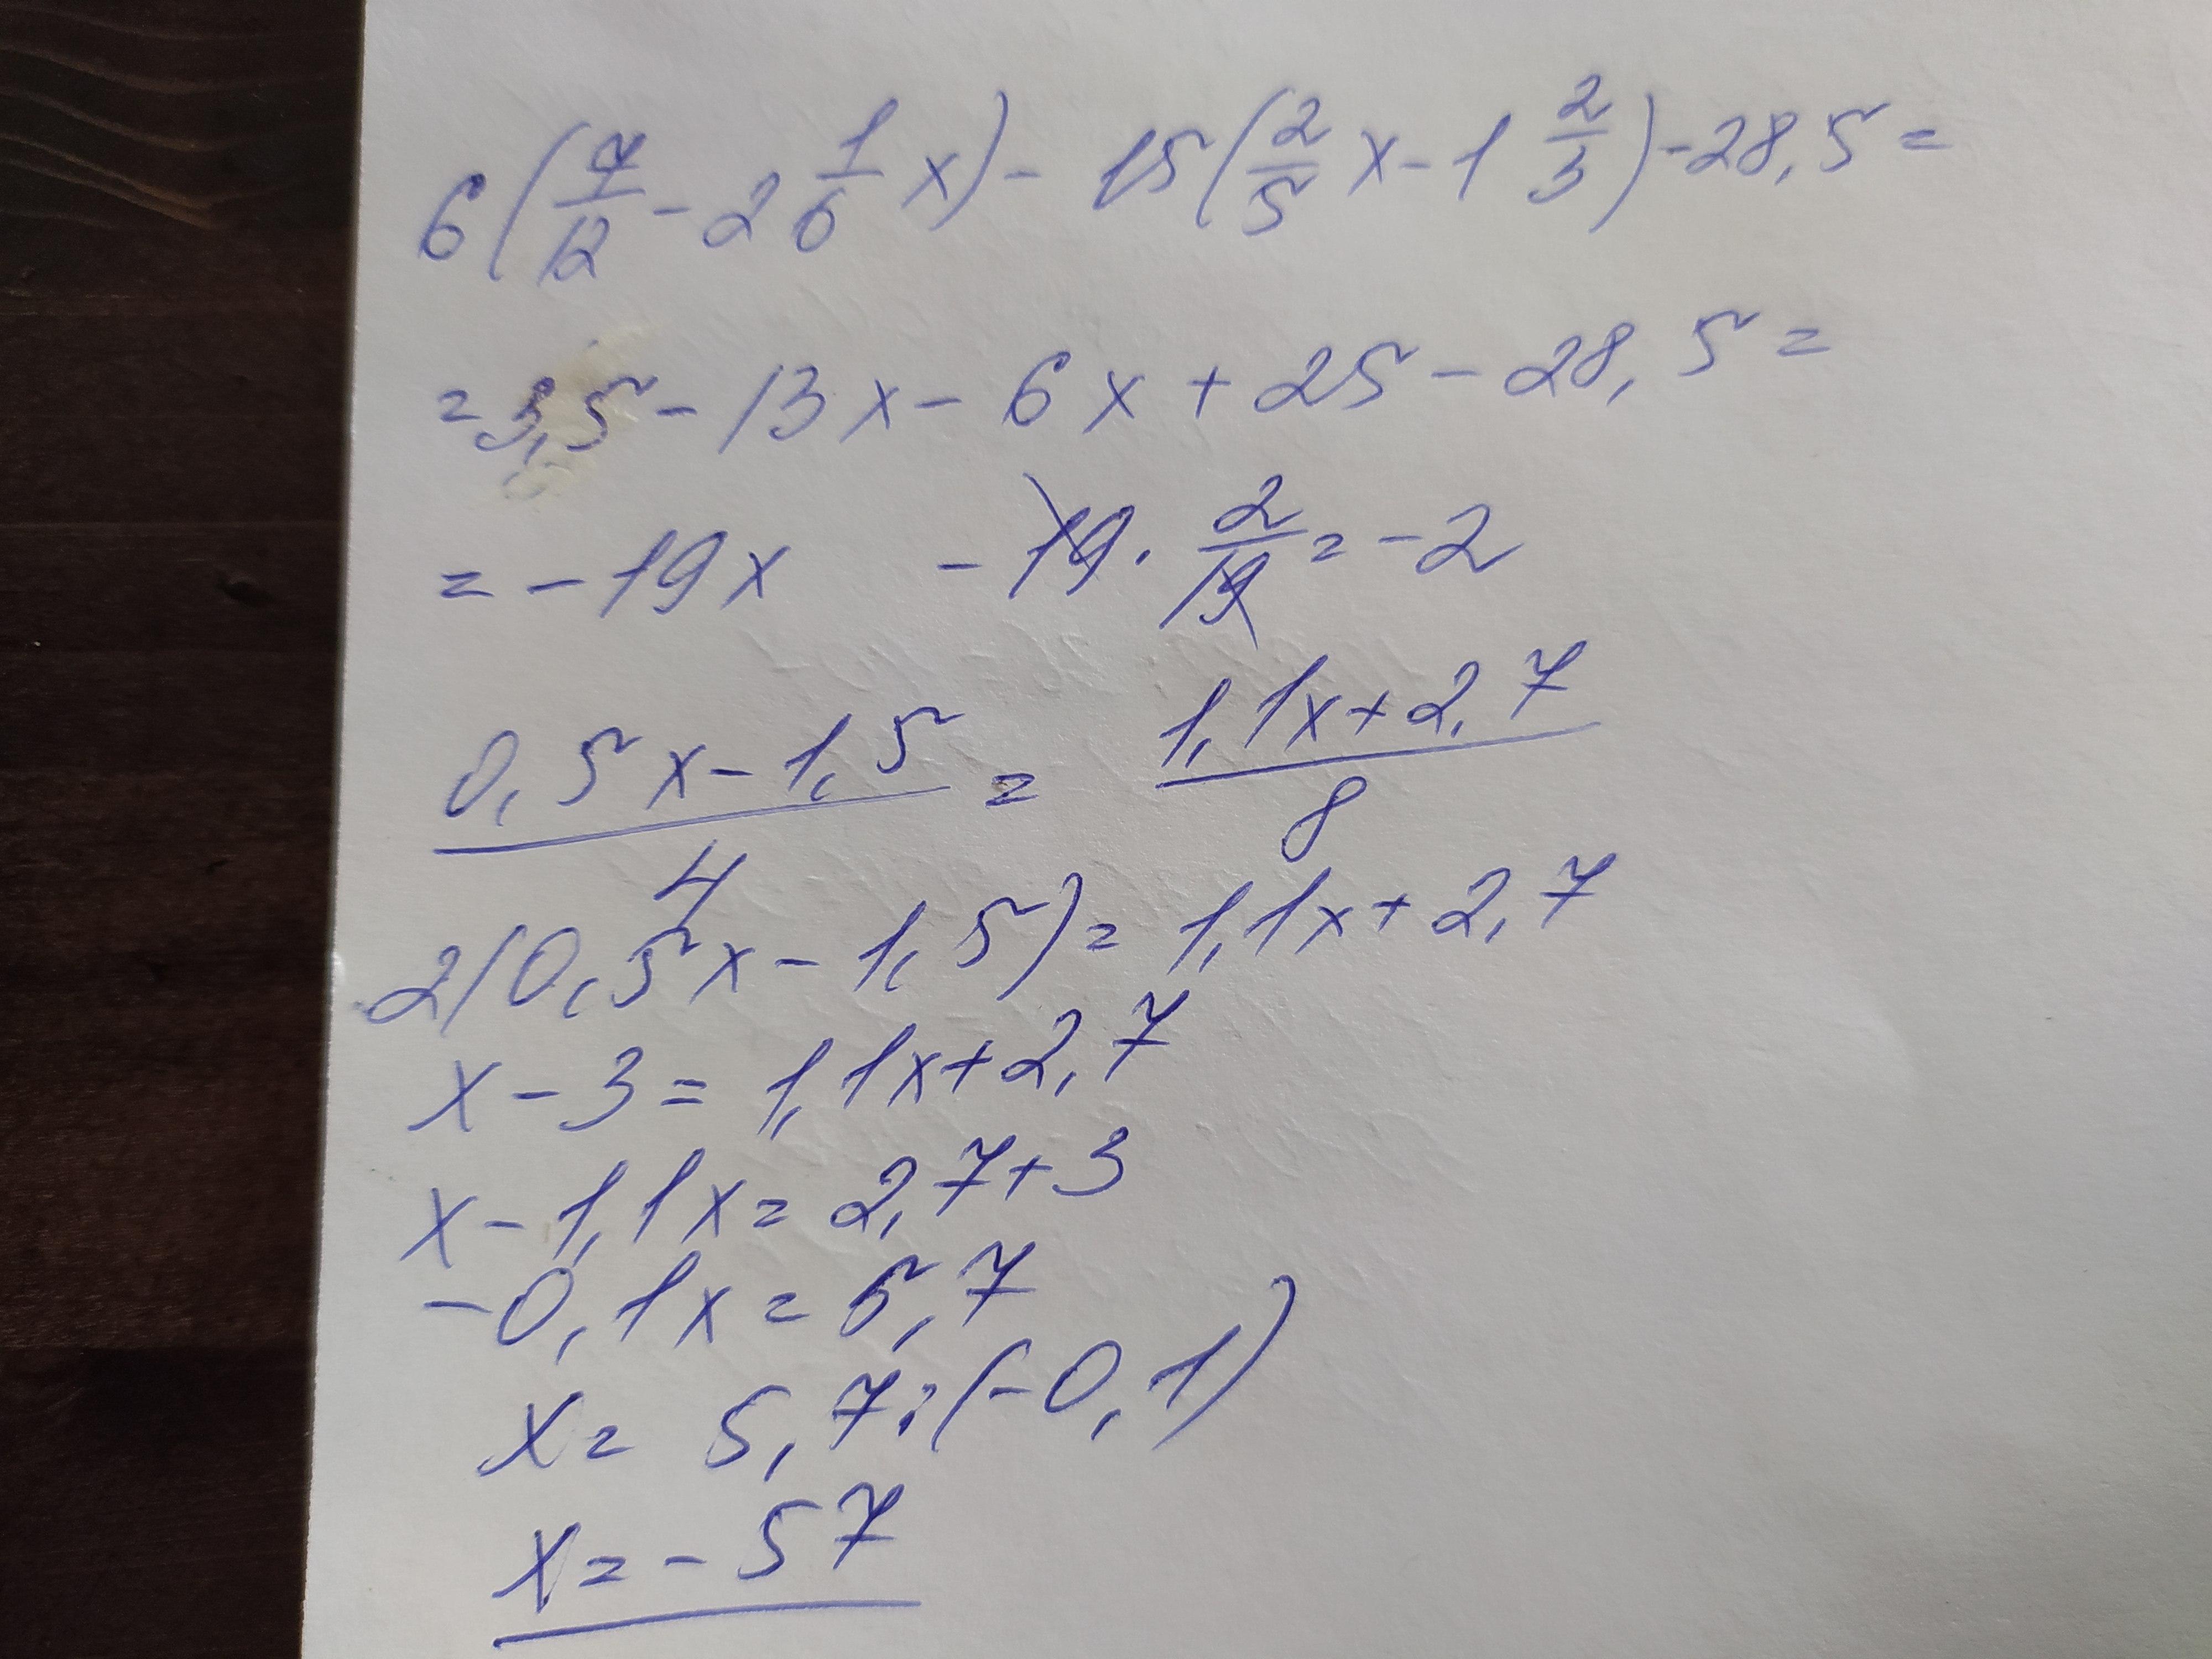 6(7/12 - 2 1/6 x) - 15(2/5 x - 1 2/3) - 28,5 =
= 3,5 - 13x - 6x + 25 - 28,5 =
= -19x    -19 · 2/19 = -2
(0,5x - 1,5)/4 = (1,1x + 2,7)/8
2(0,5x - 1,5) = 1,1x + 2,7
x - 3 = 1,1x + 2,7
x - 1,1x = 2,7 + 3
-0,1x = 5,7
x = 5,7 : (-0,1)
x = -57